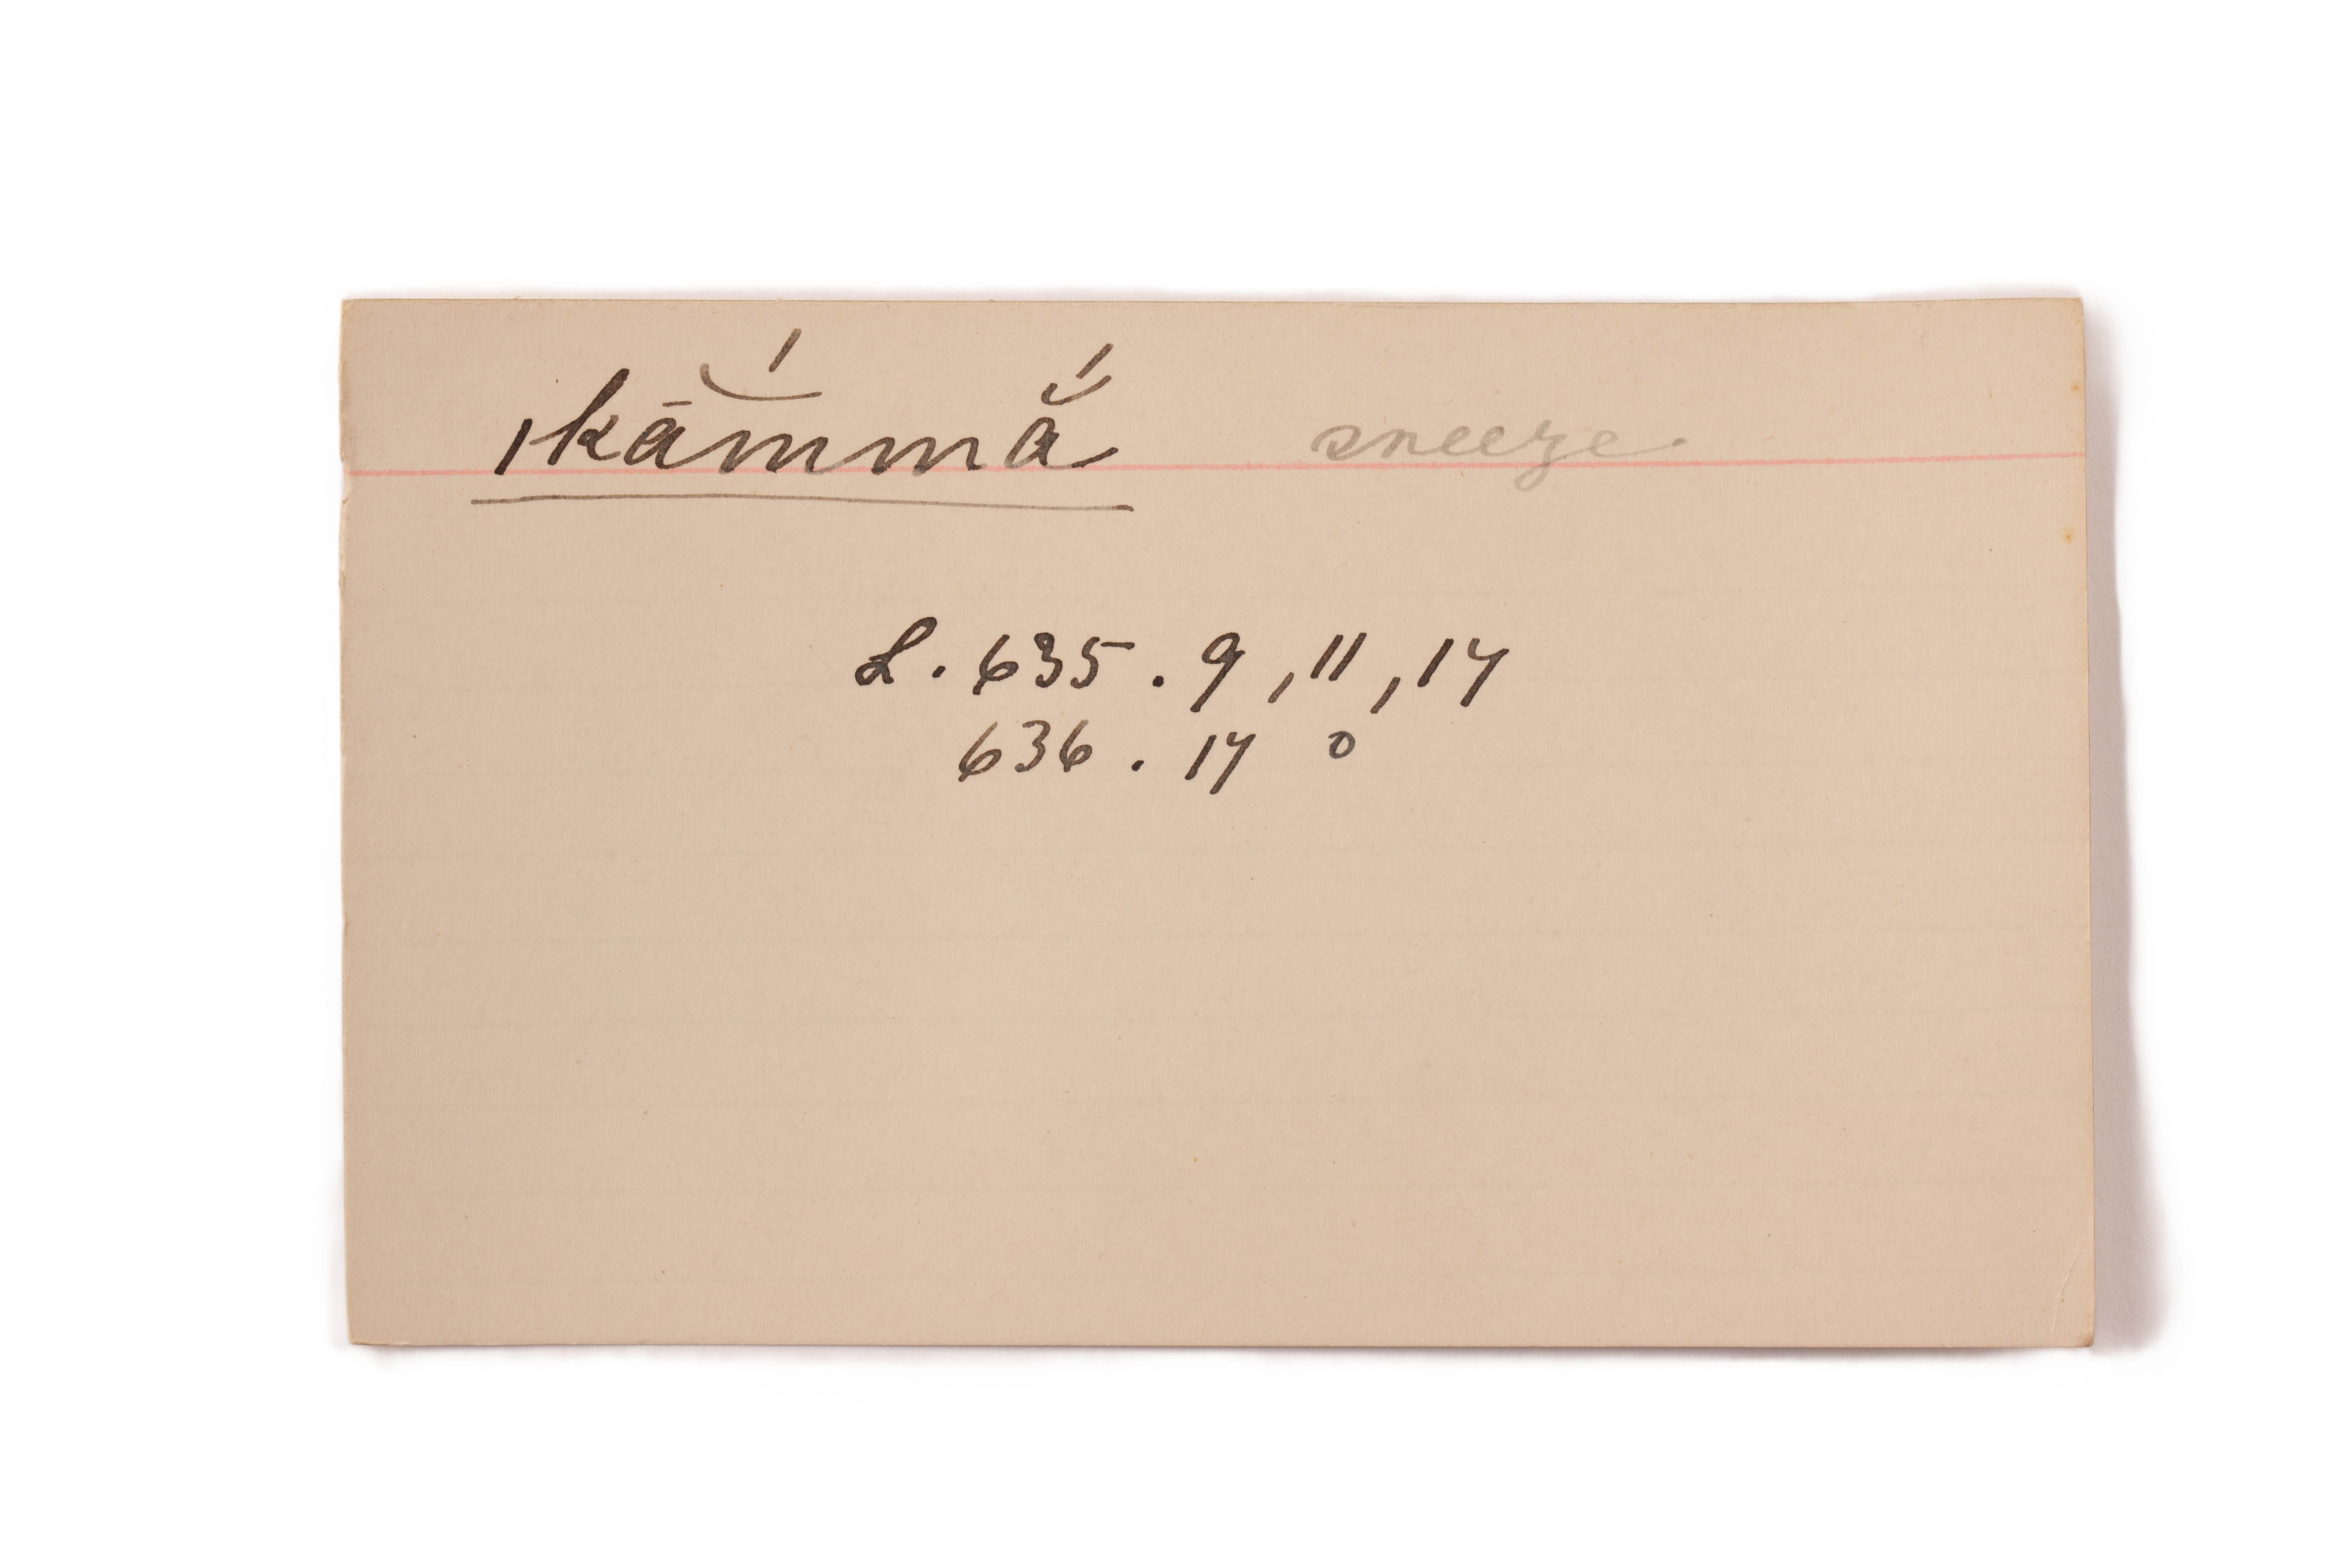 ǀkā̆́mmắ sneeze.
L. 635. 9, 11, 17
636. 17 o